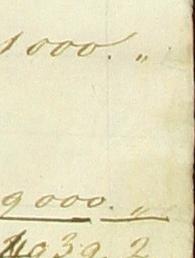 1000. "
9000. "
4039. 2